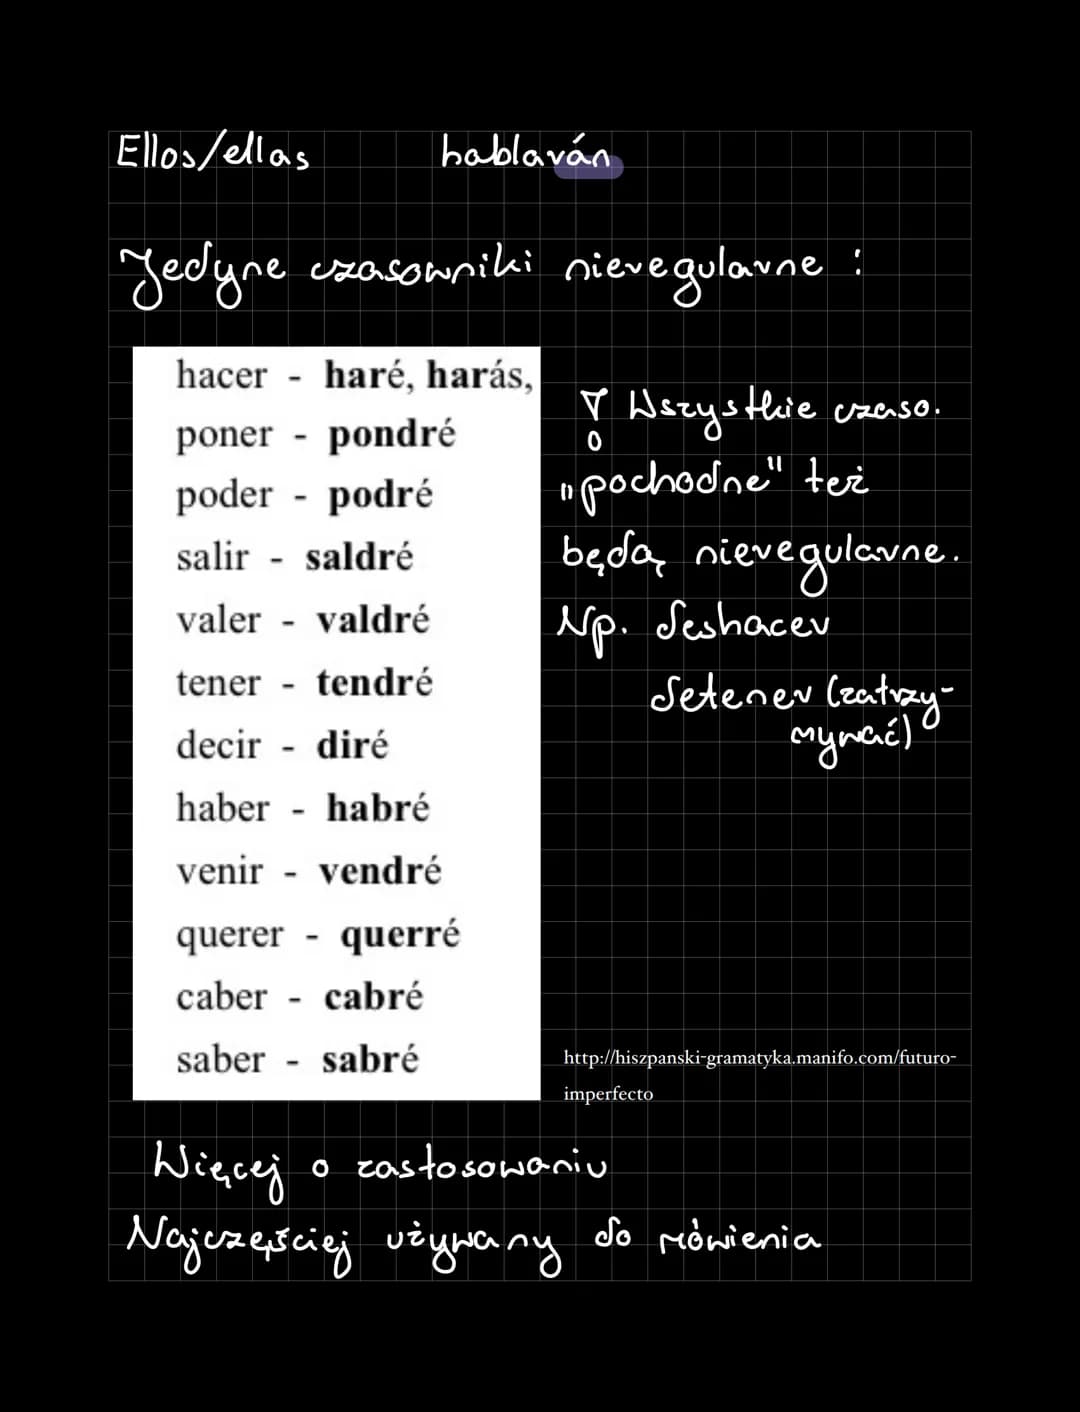 Ellos/ellas hablarán
Jedyne czasowniki nieregularne :
hacer - haré, harás,
poner - pondré
poder - podré
salir - saldré
valer - valdré
tener - tendré
decir - diré
haber - habré
venir - vendré
querer - querré
caber - cabré
saber - sabré
! Wszystkie czaso.
"pochodne" też
będą nieregularne.
Np. deshacer
detener (zatrzy-
mywać)
http://hiszpanski-gramatyka.manifo.com/futuro-
imperfecto
Więcej o zastosowaniu
Najczęściej używany do mówienia